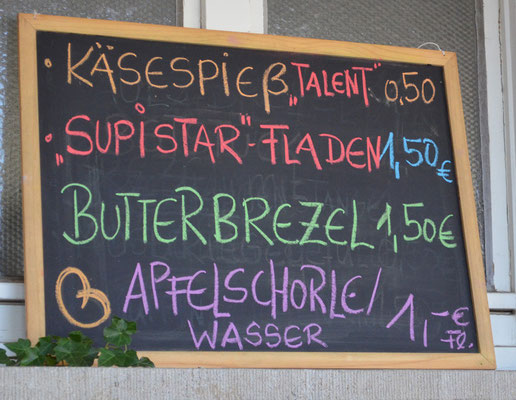 · KÄSESPIEß „TALENT" 0,50
· „SUPISTAR"-FLADEN 1,50 €
BUTTERBREZEL 1,50 €
APFELSCHORLE/ 1,- €
WASSER Fl.